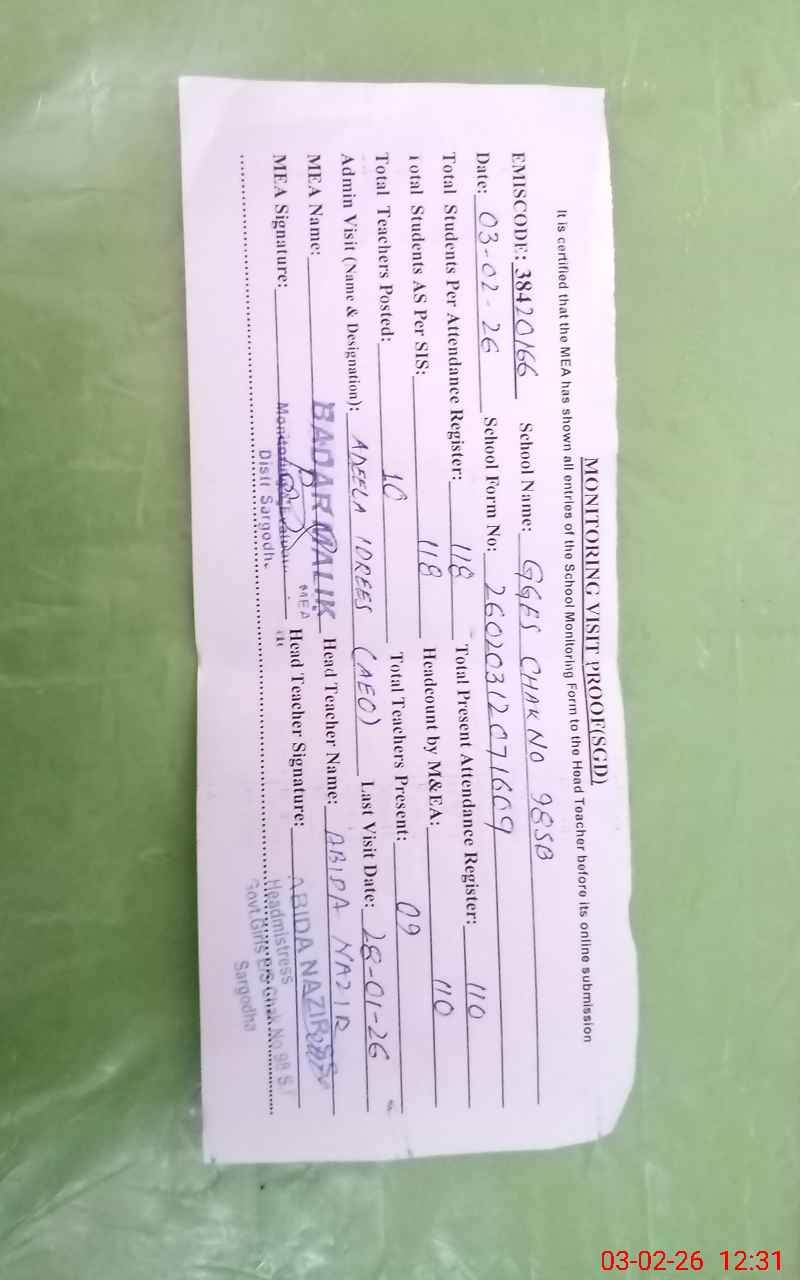 MONITORING VISIT PROOF(SGD)
It is certified that the MEA has shown all entries of the School Monitoring Form to the Head Teacher before its online submission
EMISCODE: 38420166 School Name: GGES CHAK NO 98SB
Date: 03-02-26 School Form No: 26020312071609
Total Students Per Attendance Register: 118 Total Present Attendance Register: 110
Total Students AS Per SIS: 118 Headcount by M&EA: 110
Total Teachers Posted: 10 Total Teachers Present: 09
Admin Visit (Name & Designation): ADEELA IDREES (AEO) Last Visit Date: 28-01-26
MEA Name: BADAR MALIK MEA Head Teacher Name: ABIDA NAZIR
MEA Signature: Monitoring Head Teacher Signature: ABIDA NAZIR
Distt Sargodha
Headmistress
Govt.Girls E/S Chak No 98 S.
Sargodha
03-02-26 12:31